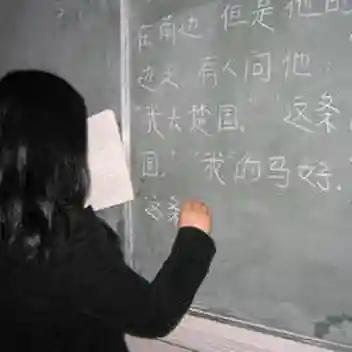 在南边 但是他的
边走. 有人问他:
"我去楚国." "这条
国." "我"的马好.
"这条